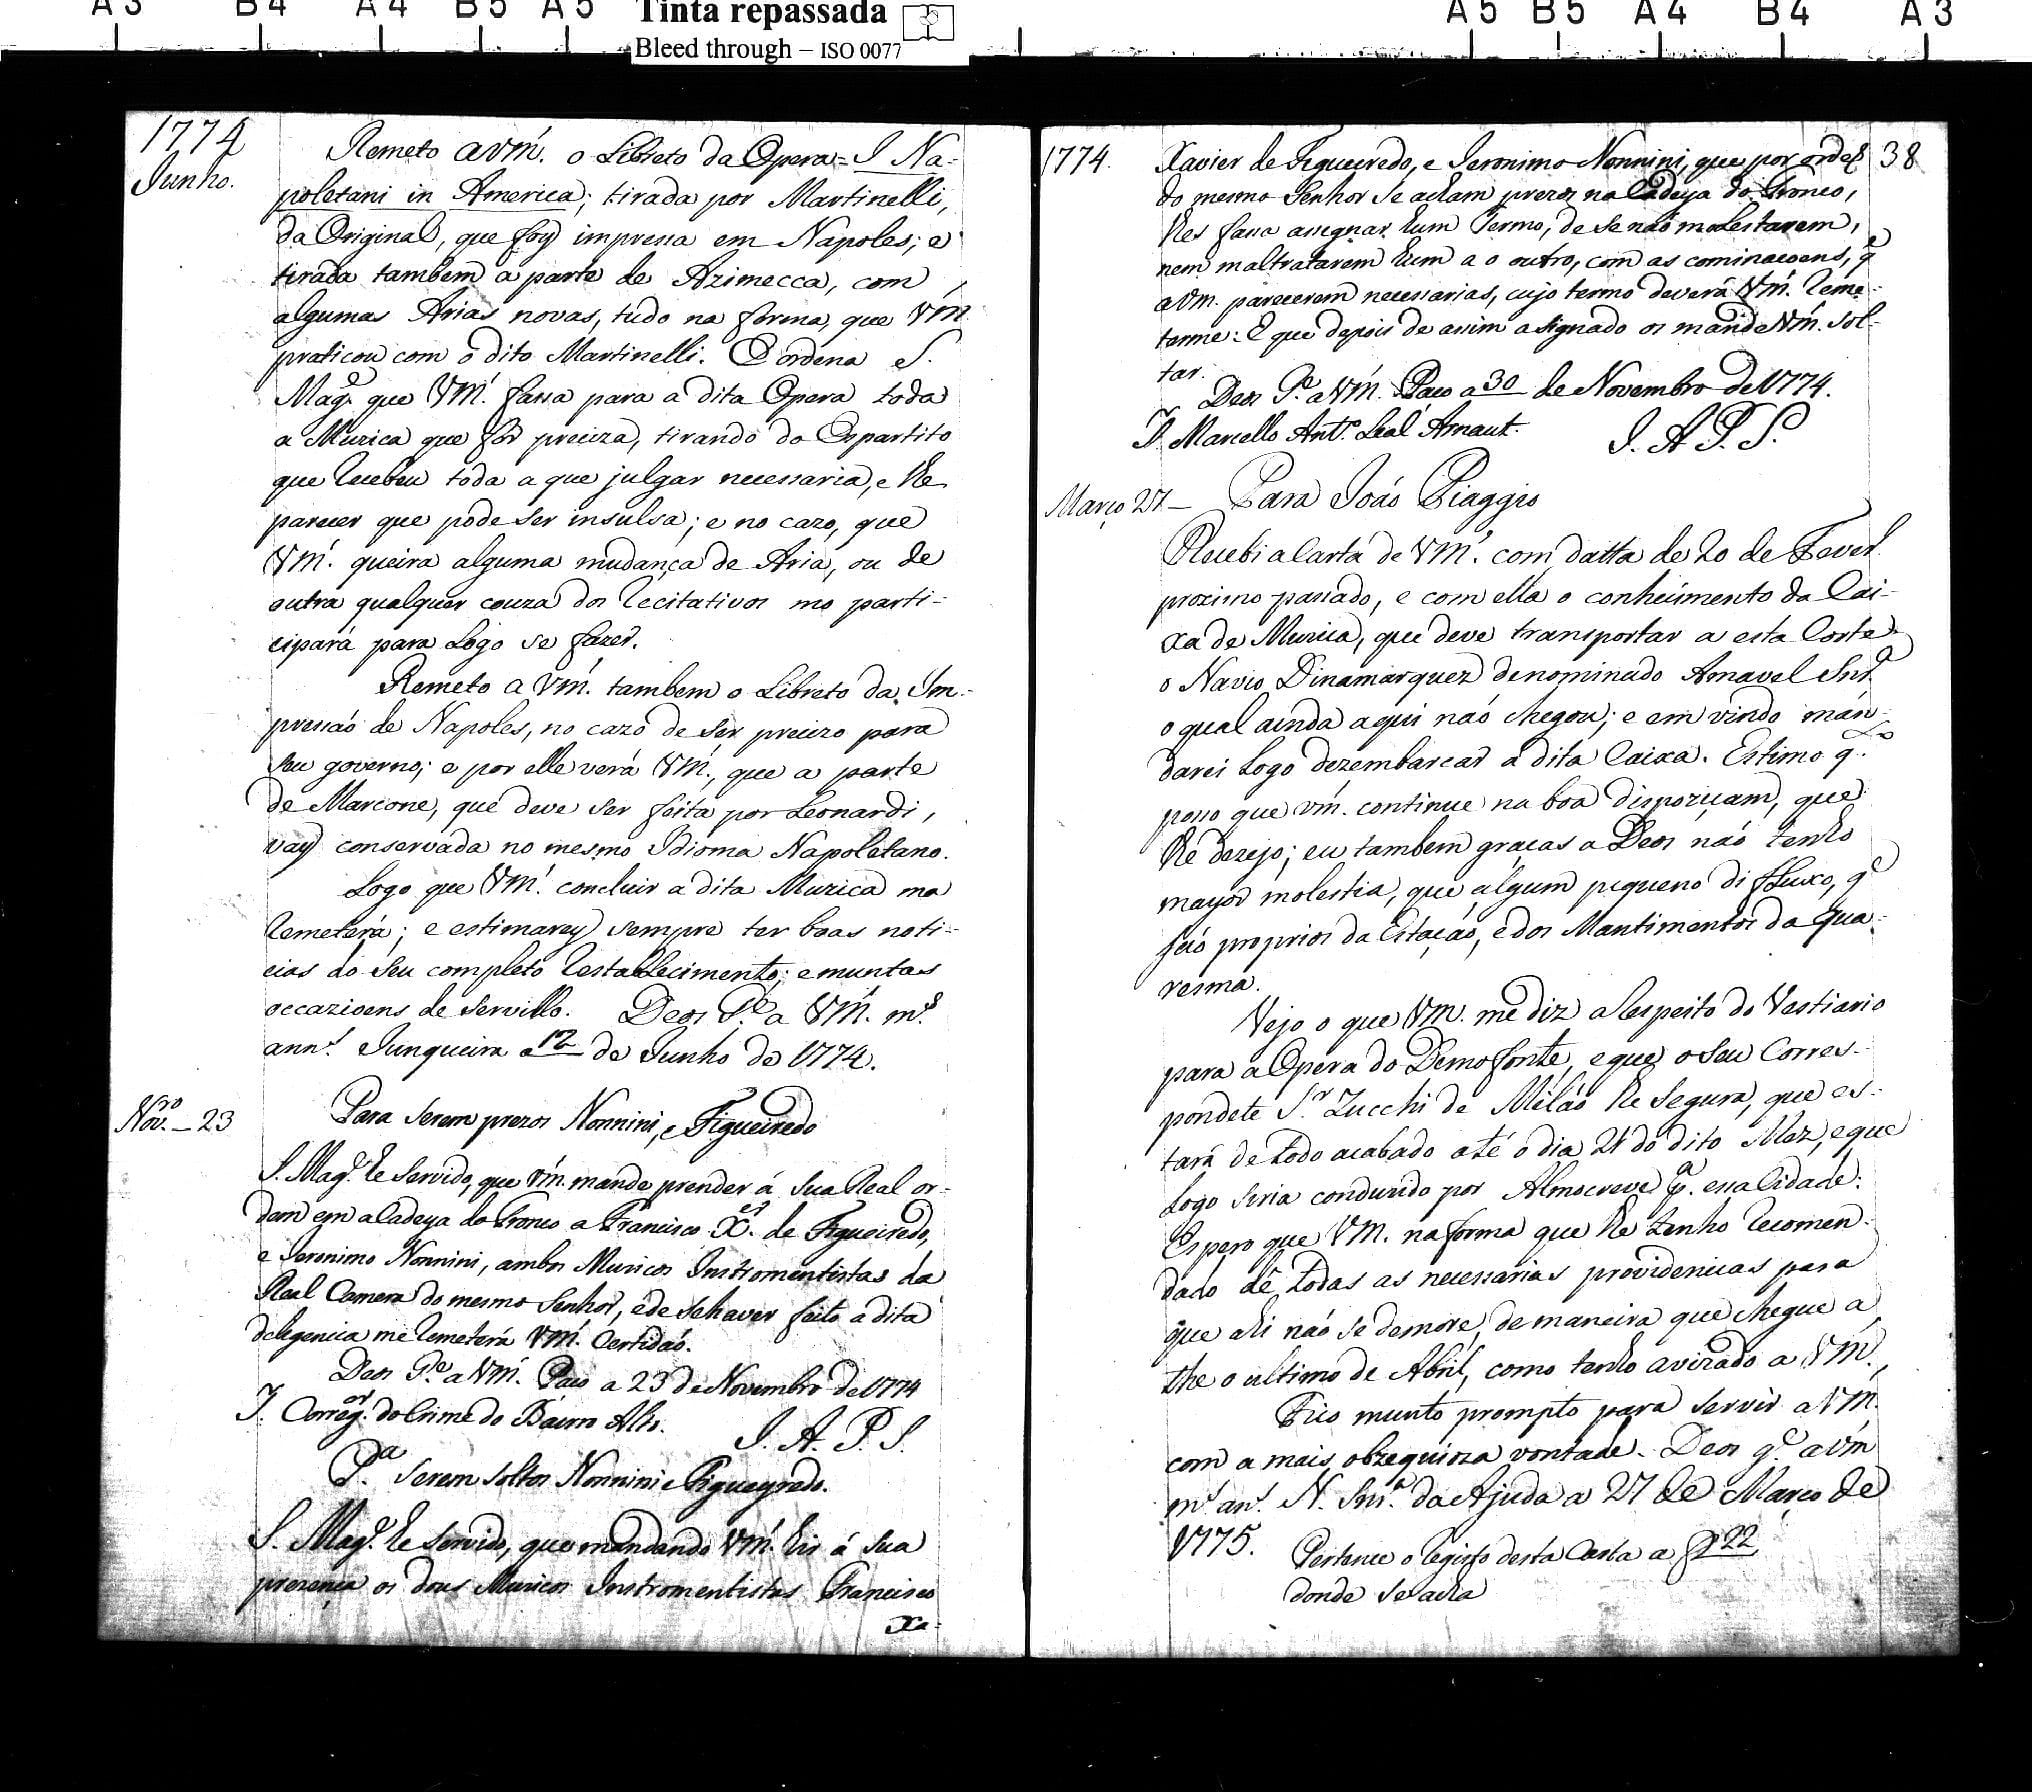 A3 B4 A4 B5 A5 Tinta repassada A5 B5 A4 B4 A3
Bleed through – ISO 0077
1774
Junho.
Remeto a Vm. o Libreto da Opera = I Na-
poletani in America; tirada por Martinelli,
da Original, que foy impressa em Napoles; e
tirada tambem a parte de Azimecca, com
algumas Arias novas, tudo na forma, que Vm.
praticou com o dito Martinelli. E ordena S.
Mag.e que Vm. fassa para a dita Opera toda
a Muzica que for preciza, tirando do Espartito
que recebeu toda a que julgar necessaria, e lhe
parecer que pode ser insulsa; e no cazo, que
Vm. queira alguma mudança de Aria, ou de
outra qualquer couza dos recitativos mo parti-
cipará para logo se fazer.
Remeto a Vm. tambem o Libreto da Im-
pressaõ de Napoles, no cazo de ser precizo para
seu governo; e por elle verá Vm., que a parte
de Marcone, que deve ser feita por Leonardi,
vay conservada no mesmo Idioma Napoletano.
Logo que Vm. concluir a dita Muzica ma
remeterá; e estimarey sempre ter boas noti-
cias do seu completo restabelecimento; e muntas
occazioens de servillo. Deos G.e a Vm. m.s
ann.s Junqueira a 12 de Junho de 1774.
Nov.ro – 23
Para serem prezos Nonnini, e Figueiredo
S. Mag.e he servido, que Vm. mande prender á sua Real or-
dem em a Cadeya do Tronco a Francisco X.er de Figueiredo,
e Jeronimo Nonnini, ambos Muzicos Instromentistas da
Real Camera do mesmo Senhor, e de se haver feito a dita
delegencia me remeterá Vm. Certidaõ.
Deos G.e a Vm. Paço a 23 de Novembro de 1774
S. Correg.or do Crime do Bairro Alto. J. A. P. S.
P.a serem soltos Nonnini e Figueyredo.
S. Mag.e he servido, que mandando Vm. hir á sua
prezença os dous Muzicos Instromentistas Francisco
Xa-
1774.
38
Xavier de Figueiredo, e Jeronimo Nonnini, que por ordem
do mesmo Senhor se acham prezos na Cadeya do Tronco,
lhes fassa assignar hum Termo, de se naõ molestarem,
nem maltratarem hum a o outro, com as cominaçoens, q.e
a Vm. parecerem necessarias, cujo termo deverá Vm. reme-
terme: E que depois de assim asignado os mande Vm. sol-
tar.
Deos G.e a Vm. Paço a 30 de Novembro de 1774.
S. Marcello Ant.o Leal Arnaut. J. A. P. S.
Março 27 – Para Joaõ Piaggio
Recebi a Carta de Vm. com datta de 20 de Fever.o
proximo passado, e com ella o conhecimento da Cai-
xa de Muzica, que deve transportar a esta Corte
o Navio Dinamarquez denominado
o qual ainda aqui naõ chegou; e em vindo man-
darei logo dezembarcar a dita Caixa. Estimo q.to
posso que Vm. continue na boa dispoziçam, que
lhe dezejo; eu tambem graças a Deos naõ tenho
mayor molestia, que algum pequeno difluxo, q.e
saõ proprios da Estaçaõ, e dos Mantimentos da Qua-
resma.
Vejo o que Vm. me diz a respeito do Vestiario
para a Opera do Demofonte, e que o seu Corres-
pondete S.r Zucchi de Milaõ lhe segura, que es-
tará de todo acabado até o dia 21 do dito Mez, e que
logo siria conduzido por Almocreve p.a essa Cidade:
Espero que Vm. na forma que lhe tenho recomen-
dado dê todas as necessarias providencias para
que ali naõ se demore, de maneira que chegue a
the o ultimo de Abril, como tenho avizado a Vm.
Fico munto prompto para servir a Vm.
com a mais obzequioza vontade. Deos g.e a Vm
m.s an.s N. Snr.a da Ajuda a 27 de Março de
1775.
Pertence o registo desta Carta a f 22
donde se acha